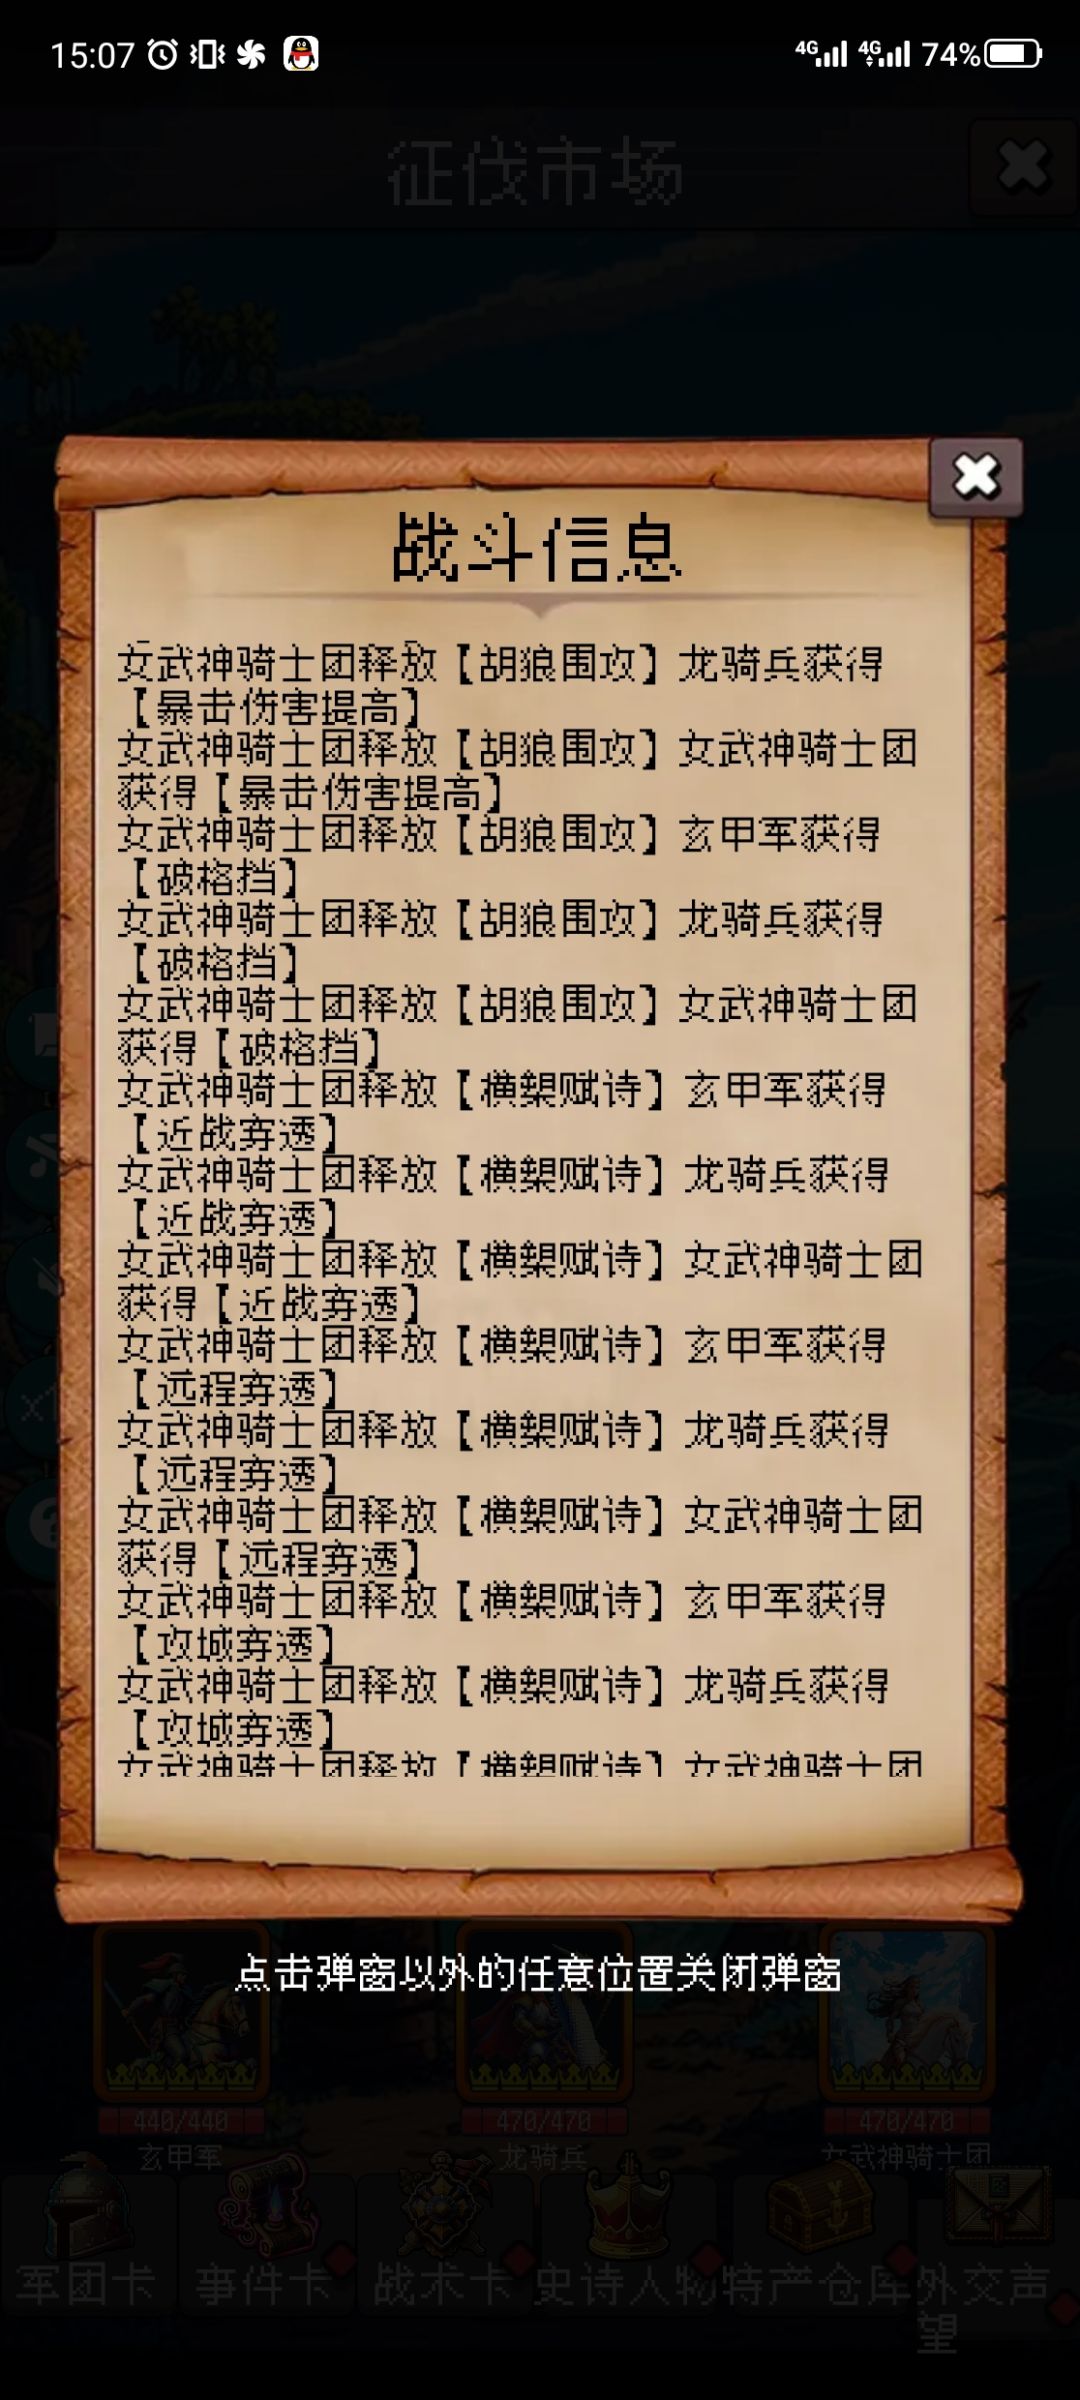 15:07
4G 4G 74%
征伐市场
战斗信息
女武神骑士团释放【胡狼围攻】龙骑兵获得
【暴击伤害提高】
女武神骑士团释放【胡狼围攻】女武神骑士团
获得【暴击伤害提高】
女武神骑士团释放【胡狼围攻】玄甲军获得
【破格挡】
女武神骑士团释放【胡狼围攻】龙骑兵获得
【破格挡】
女武神骑士团释放【胡狼围攻】女武神骑士团
获得【破格挡】
女武神骑士团释放【横槊赋诗】玄甲军获得
【近战穿透】
女武神骑士团释放【横槊赋诗】龙骑兵获得
【近战穿透】
女武神骑士团释放【横槊赋诗】女武神骑士团
获得【近战穿透】
女武神骑士团释放【横槊赋诗】玄甲军获得
【远程穿透】
女武神骑士团释放【横槊赋诗】龙骑兵获得
【远程穿透】
女武神骑士团释放【横槊赋诗】女武神骑士团
获得【远程穿透】
女武神骑士团释放【横槊赋诗】玄甲军获得
【攻城穿透】
女武神骑士团释放【横槊赋诗】龙骑兵获得
【攻城穿透】
女武神骑士团释放【横槊赋诗】女武神骑士团
点击弹窗以外的任意位置关闭弹窗
440/440 470/470 470/470
玄甲军 龙骑兵 女武神骑士团
军团卡 事件卡 战术卡 史诗人物 特产仓库 外交声
望